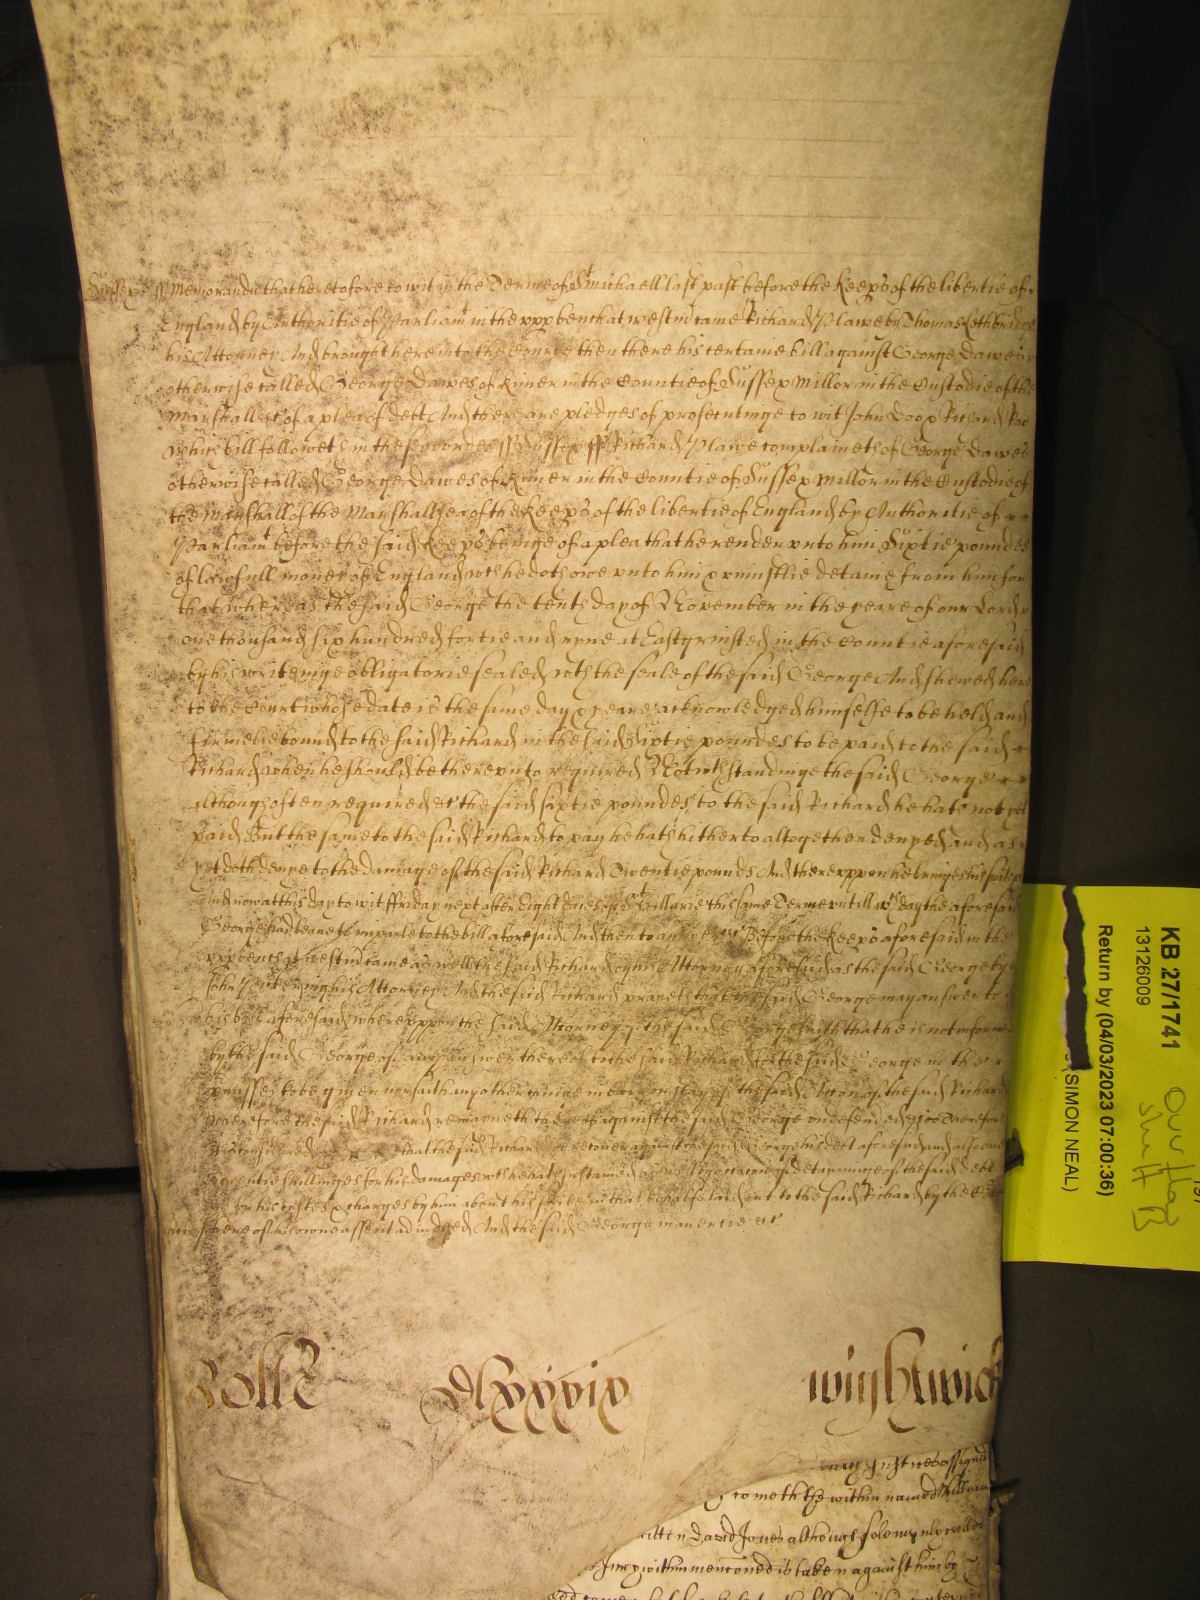 Sussex ss Memorand that heretofore to wit in the Terme of St Michaell last past before the Keeps of the libertie of
England by Authoritie of Parliamt in the upp bench at westm came Richard Plawe by Thomas Lethbridge
his Attorney And brought here into the Court then there his certaine bill against George Dawes
otherwise called George Dawes of in the Countie of Sussex Millor in the Custodie of the
Marshall &c of a plea of dett And there are pledges of prosecutinge to wit John Doo & Richard Roo
which bill followeth in these wordes ss Sussex ss Richard Plawe complaineth of George Dawes
otherwise called George Dawes of in the Countie of Sussex Millor in the Custodie of
the Marshall of the Marshallsea of the Keeps of the libertie of England by Authoritie of
Parliamt before the said Keeps beinge of a plea that he render unto him Sixtie poundes
of lawfull money of England wch he doth owe unto him & uniustlie detaine from him for
that whereas the said George the tenth day of November in the yeare of our Lord
one thousand six hundred fortie and nyne at Eastgrinsted in the Countie aforesaid
by his writeinge obligatorie sealed wth the seale of the said George And shewed here
to the Court whose date is the same day & yeare acknowledged himselfe to be held and
firmelie bound to the said Richard in the said Sixtie poundes to be paid to the said
Richard when he should be thereunto required Notwthstandinge the said George
although often required &c the said sixtie poundes to the said Richard he hath not yet
paid But the same to the said Richard to pay he hath hitherto altogether denyed and as
yet doth denye to the damage of the said Richard Twentie poundes And thereuppon he bringes his suite
And now att this day to wit ffriday next after Eight daies of St Hillarie this same Terme untill wch day the aforesaid
George had leave to imparle to the bill aforesaid And then to answere &c Before the Keeps aforesaid in the
upp bench at westm came aswell the said Richard by his Attorney aforesaid as the said George by
John his Attorney And the said Richard prayeth that the said George may answer to
his bill aforesaid whereuppon the said Attorney of the said George saith that he is not informed
by the said George of any answer thereof to the said Richard for the said George in the
pmisses to be given nor saith any other thinge in bar or stay of the said Accon of the said Richard
wherefore the said Richard remaineth thereof against the said George undefended &c Therefore
it is considered that the said Richard doe recover against the said George his dett aforesaid and alsoe
shillinges for his damages wch he hath sustained aswell by occacon of detayninge of the said debt
as for his costes & charges by him about his suite in that behalfe laid out to the said Richard by the Court
here of his owne assent adiudged And the said George in mercie &c
Rolle dlxxxix wightwick
cometh the within named William
written David Jones although solemnly called
Jury within menconed is taken against him by
KB 27/1741
13126009
Return by (04/03/2023 07:00:36)
(SIMON NEAL)